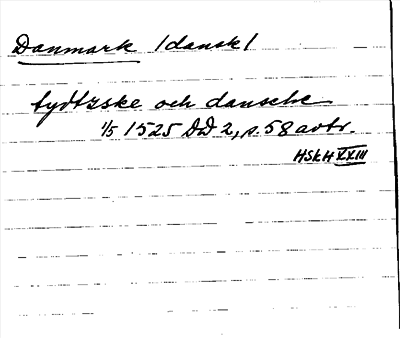 Danmark /dansk/
tydtzske och dansche
1/5 1525 DD 2, s. 58 avtr.
HSkH XXIII